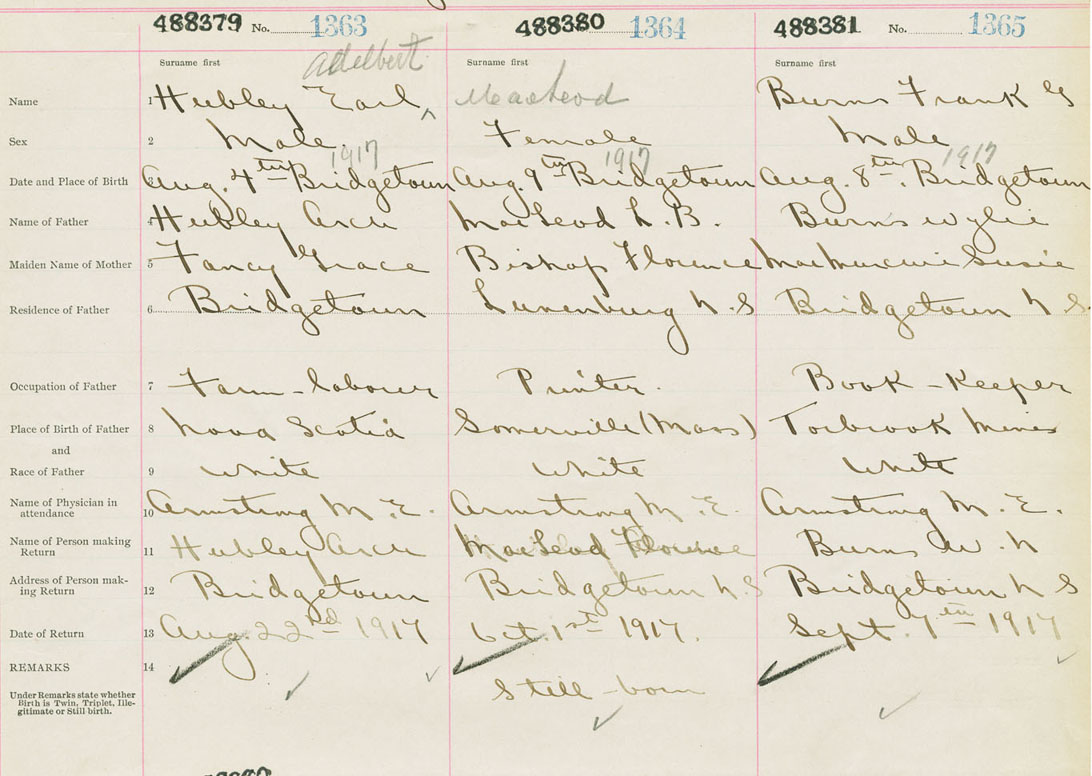 488379 No. 1363 488380 1364 488381 No. 1365
Surname first Adelbert Surname first Surname first
Name 1 Hubley Earl ^ MacLeod Burns Frank G
Sex 2 Male. Female Male
1917 1917 1917
Date and Place of Birth Aug. 4th Bridgetown Aug. 9th Bridgetown Aug. 8th. Bridgetown
Name of Father 4 Hubley Arch MacLeod L. B. Burns Wylie
Maiden Name of Mother 5 Fancy Grace Bishop Florence Susie
Residence of Father 6 Bridgetown Lunenburg N.S Bridgetown N.S.
Occupation of Father 7 Farm-labourer Printer. Book-Keeper
Place of Birth of Father 8 Nova Scotia Somerville (Mass) Torbrook Mines
and
Race of Father 9 White White White
Name of Physician in
attendance 10 Armstrong M.E. Armstrong M.E. Armstrong M.E.
Name of Person making
Return 11 Hubley Arch MacLeod Florence Burns W. H
Address of Person mak-
ing Return 12 Bridgetown Bridgetown N.S Bridgetown N S
Date of Return 13 Aug 22nd 1917 Oct. 1st 1917. Sept. 7th 1917
REMARKS 14
Under Remarks state whether
Birth is Twin, Triplet, Ille-
gitimate or Still birth.
Still-born